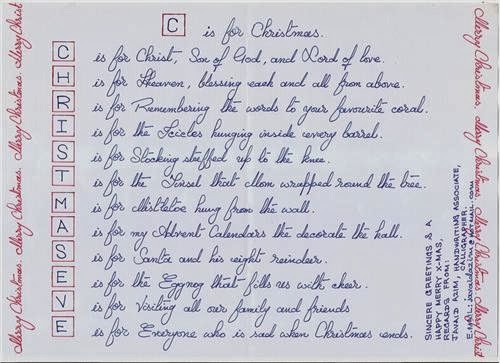 C is for Christmas.
C is for Christ, Son of God, and Lord of love.
H is for Heaven, blessing each and all from above.
R is for Remembering the words to your favourite coral.
I is for the Icicles hunging inside every barrel.
S is for Stocking stuffed up to the knee.
T is for the Tinsel that Mom wrapped round the tree.
M is for Mistletoe hung from the wall.
A is for my Advent Calendars the decorate the hall.
S is for Santa and his eight reindeer.
E is for the Eggnog that fills us with cheer.
V is for Visiting all our family and friends
E is for Everyone who is sad when Christmas ends.
Merry Christmas Merry Christmas Merry Christ
Merry Christmas Merry Christmas Merry Christmas
SINCERE GREETINGS &
HAPPY MERRY X-MAS,
REGARDS FROM:
JAVAID AZIM, HANDWRITING ASSOCIATE,
CALLIGRAPHER.
E.MAIL: